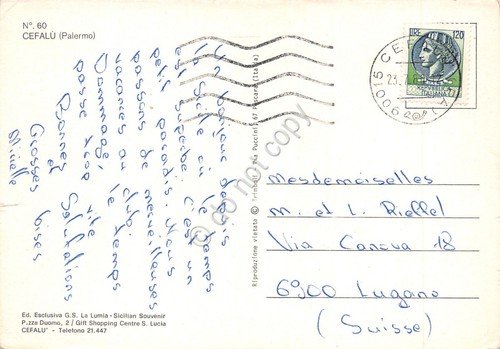 N°. 60
CEFALÙ (Palermo)
Un bonjour depuis
la Sicile où le temps
est superbe. C'est un
petit paradis. Nous
passons de merveilleuses
vacances au club.
Dommage, le temps
passe trop vite
Bonnes Salutations
et
Grosses bises
Mireille
Ed. Esclusiva G.S. La Lumia - Sicilian Souvenir
P.zza Duomo, 2 / Gift Shopping Centre S. Lucia
CEFALU' - Telefono 21.447
Riproduzione vietata © Trinacria Via Puccini 67 Pescara (Italia)
LIRE 120
REPUBBLICA
ITALIANA
90015 CEFALU
Mesdemoiselles
M. et L. Rieffel
Via Canova 18
6900 Lugano
(Suisse)
© do not copy